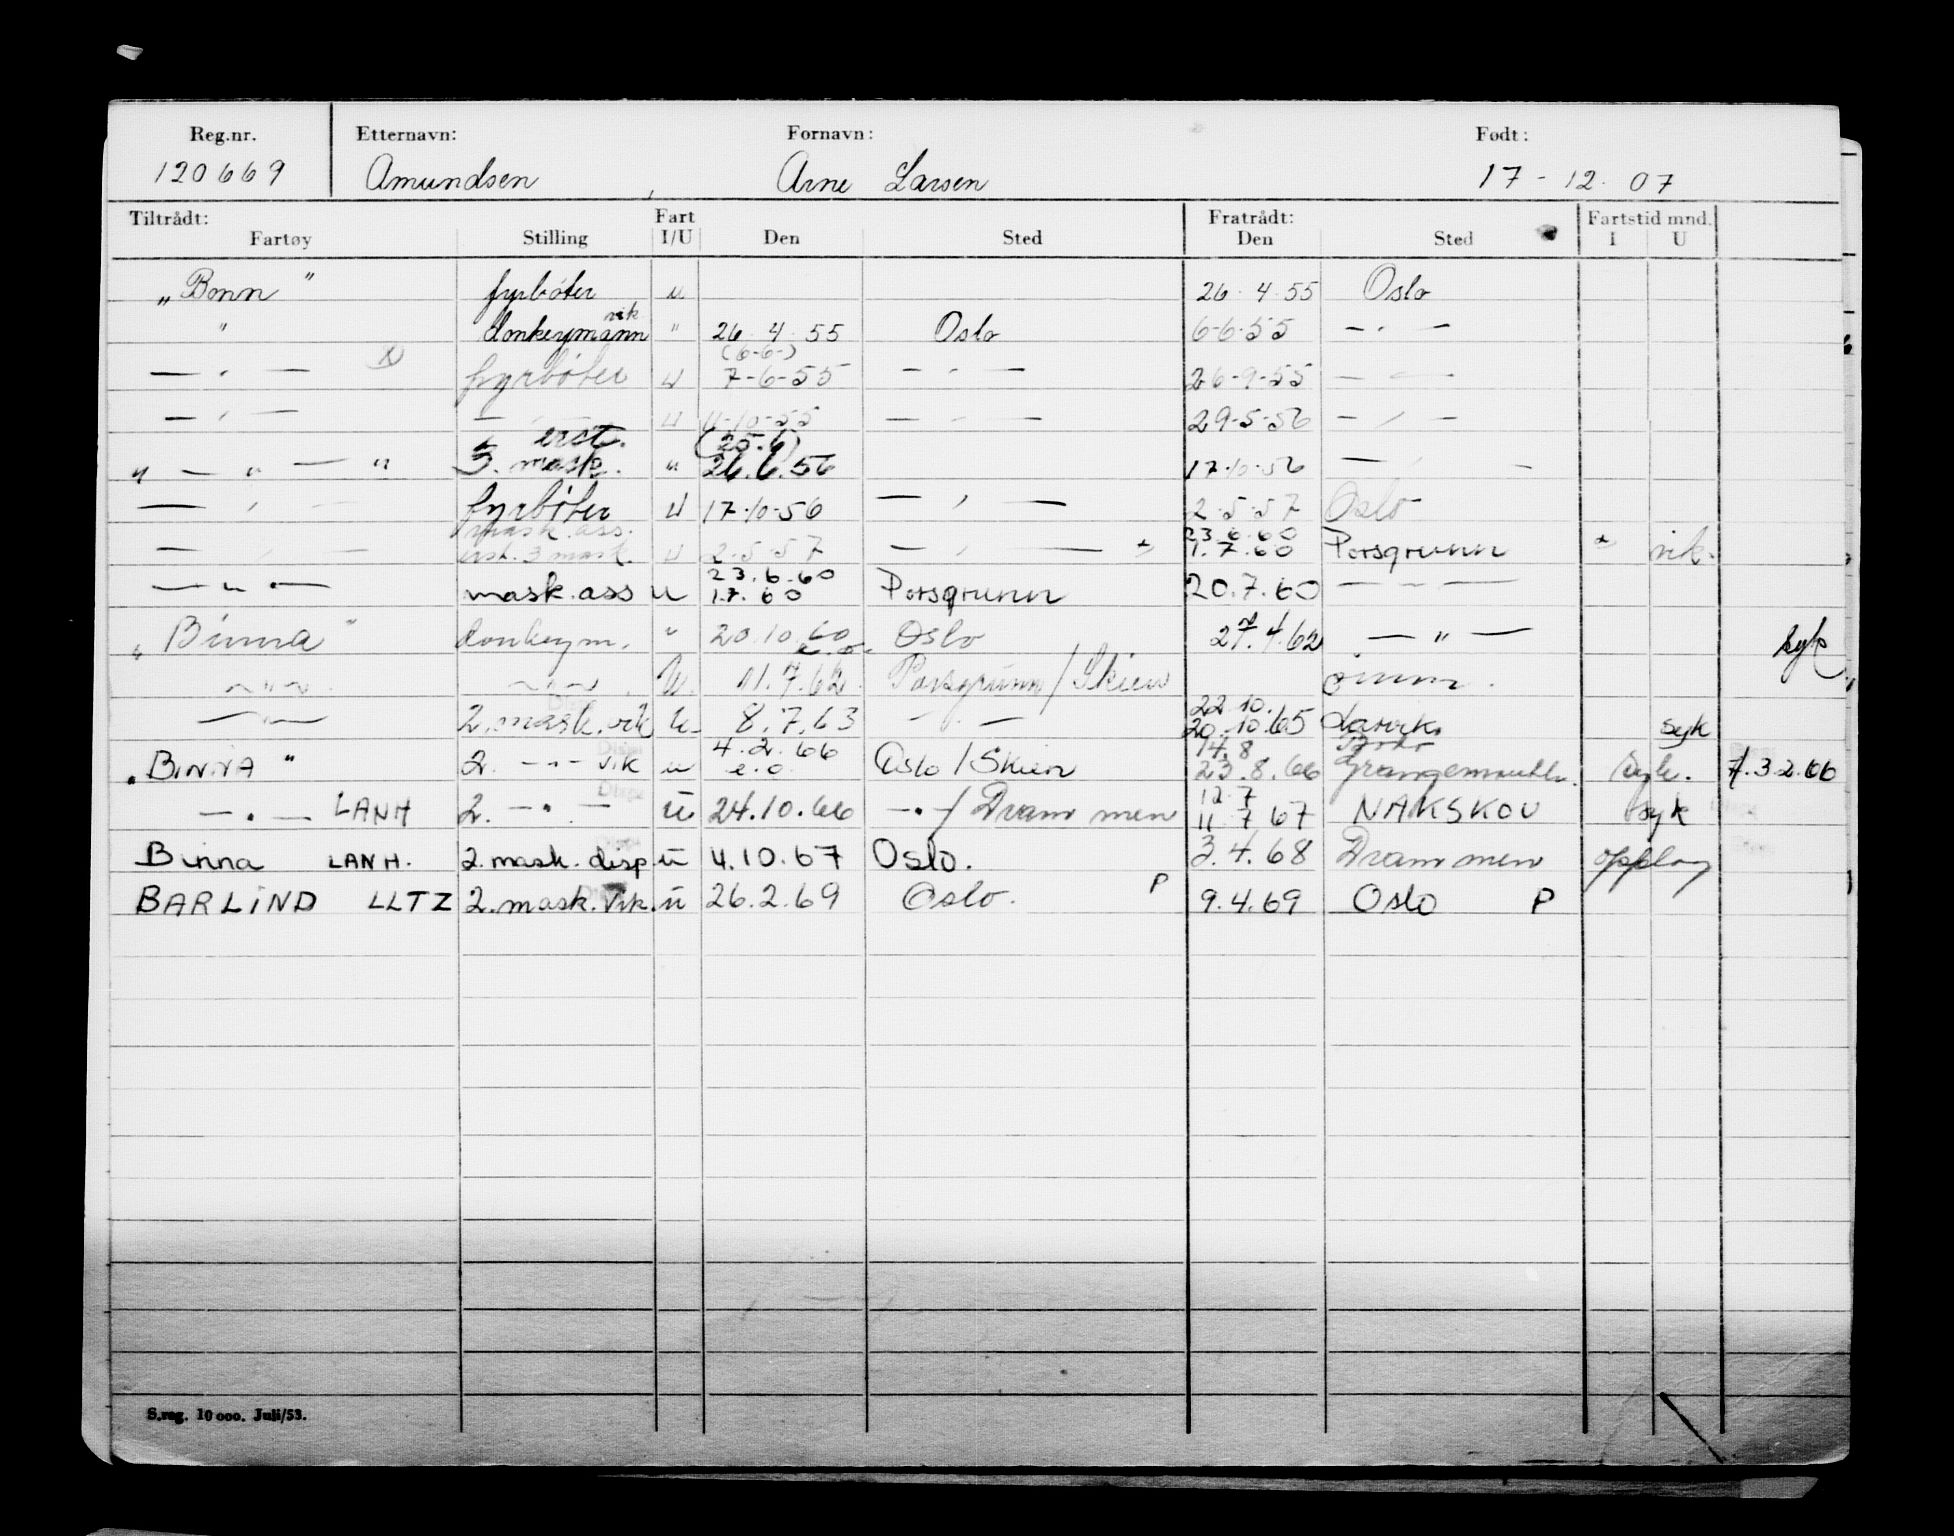 Reg.nr. Etternavn: Fornavn: Født:
120669 Amundsen Arne Larsen 17-12.07
Tiltrådt: Fart Fratrådt: Fartstid mnd.
Fartøy Stilling I/U Den Sted Den Sted I U
„Bonn" fyrbøter u 26.4.55 Oslo
vik
" donkeymann " 26.4.55 Oslo 6-6-55 — · —
(6-6-)
— · — fyrbøter U 7-6-55 — · — 26-9-55 — —
— · — — U 11-10-55 — — 29-5-56 — · —
erst. (25.6)
" — " — " 3. mask. " 26.6.56 17.10.56 — —
— · — fyrbøter U 17.10-56 — · — 2.5.57 Oslo
mask.ass. 23.6.60
— · — erst. 3 mask. U 2.5.57 — · — 1.7.60 Porsgrunn vik.
23.6.60
— " — mask.ass u 1.7.60 Porsgrunn 20.7.60 — " —
„Binna" donkeym. " 20.10.60 Oslo 27.4.62 — " — syk
e.o.
~ " ~ ~ " ~ U. 11.7.62 Porsgrunn/Skien
22.10.
— " — 2.mask.vik U 8.7.63 — · — 20.10.65 Larvik syk
4.2.66 14.8
„BINNA" 2. — " — vik u e.o. Oslo/Skien 23.8.66 Grangemouth. syk. 7.3.2.66
12.7
— · — LANH 2. — · — u 24.10.66 — · —/Drammen 11.7.67 NAKSKOV syk
Binna LANH. 2.mask.disp u 4.10.67 Oslo. 3.4.68 Drammen opplag
BARLIND LLTZ 2.mask.vik. u 26.2.69 Oslo. P 9.4.69 Oslo P
S.reg. 10 000. Juli/53.